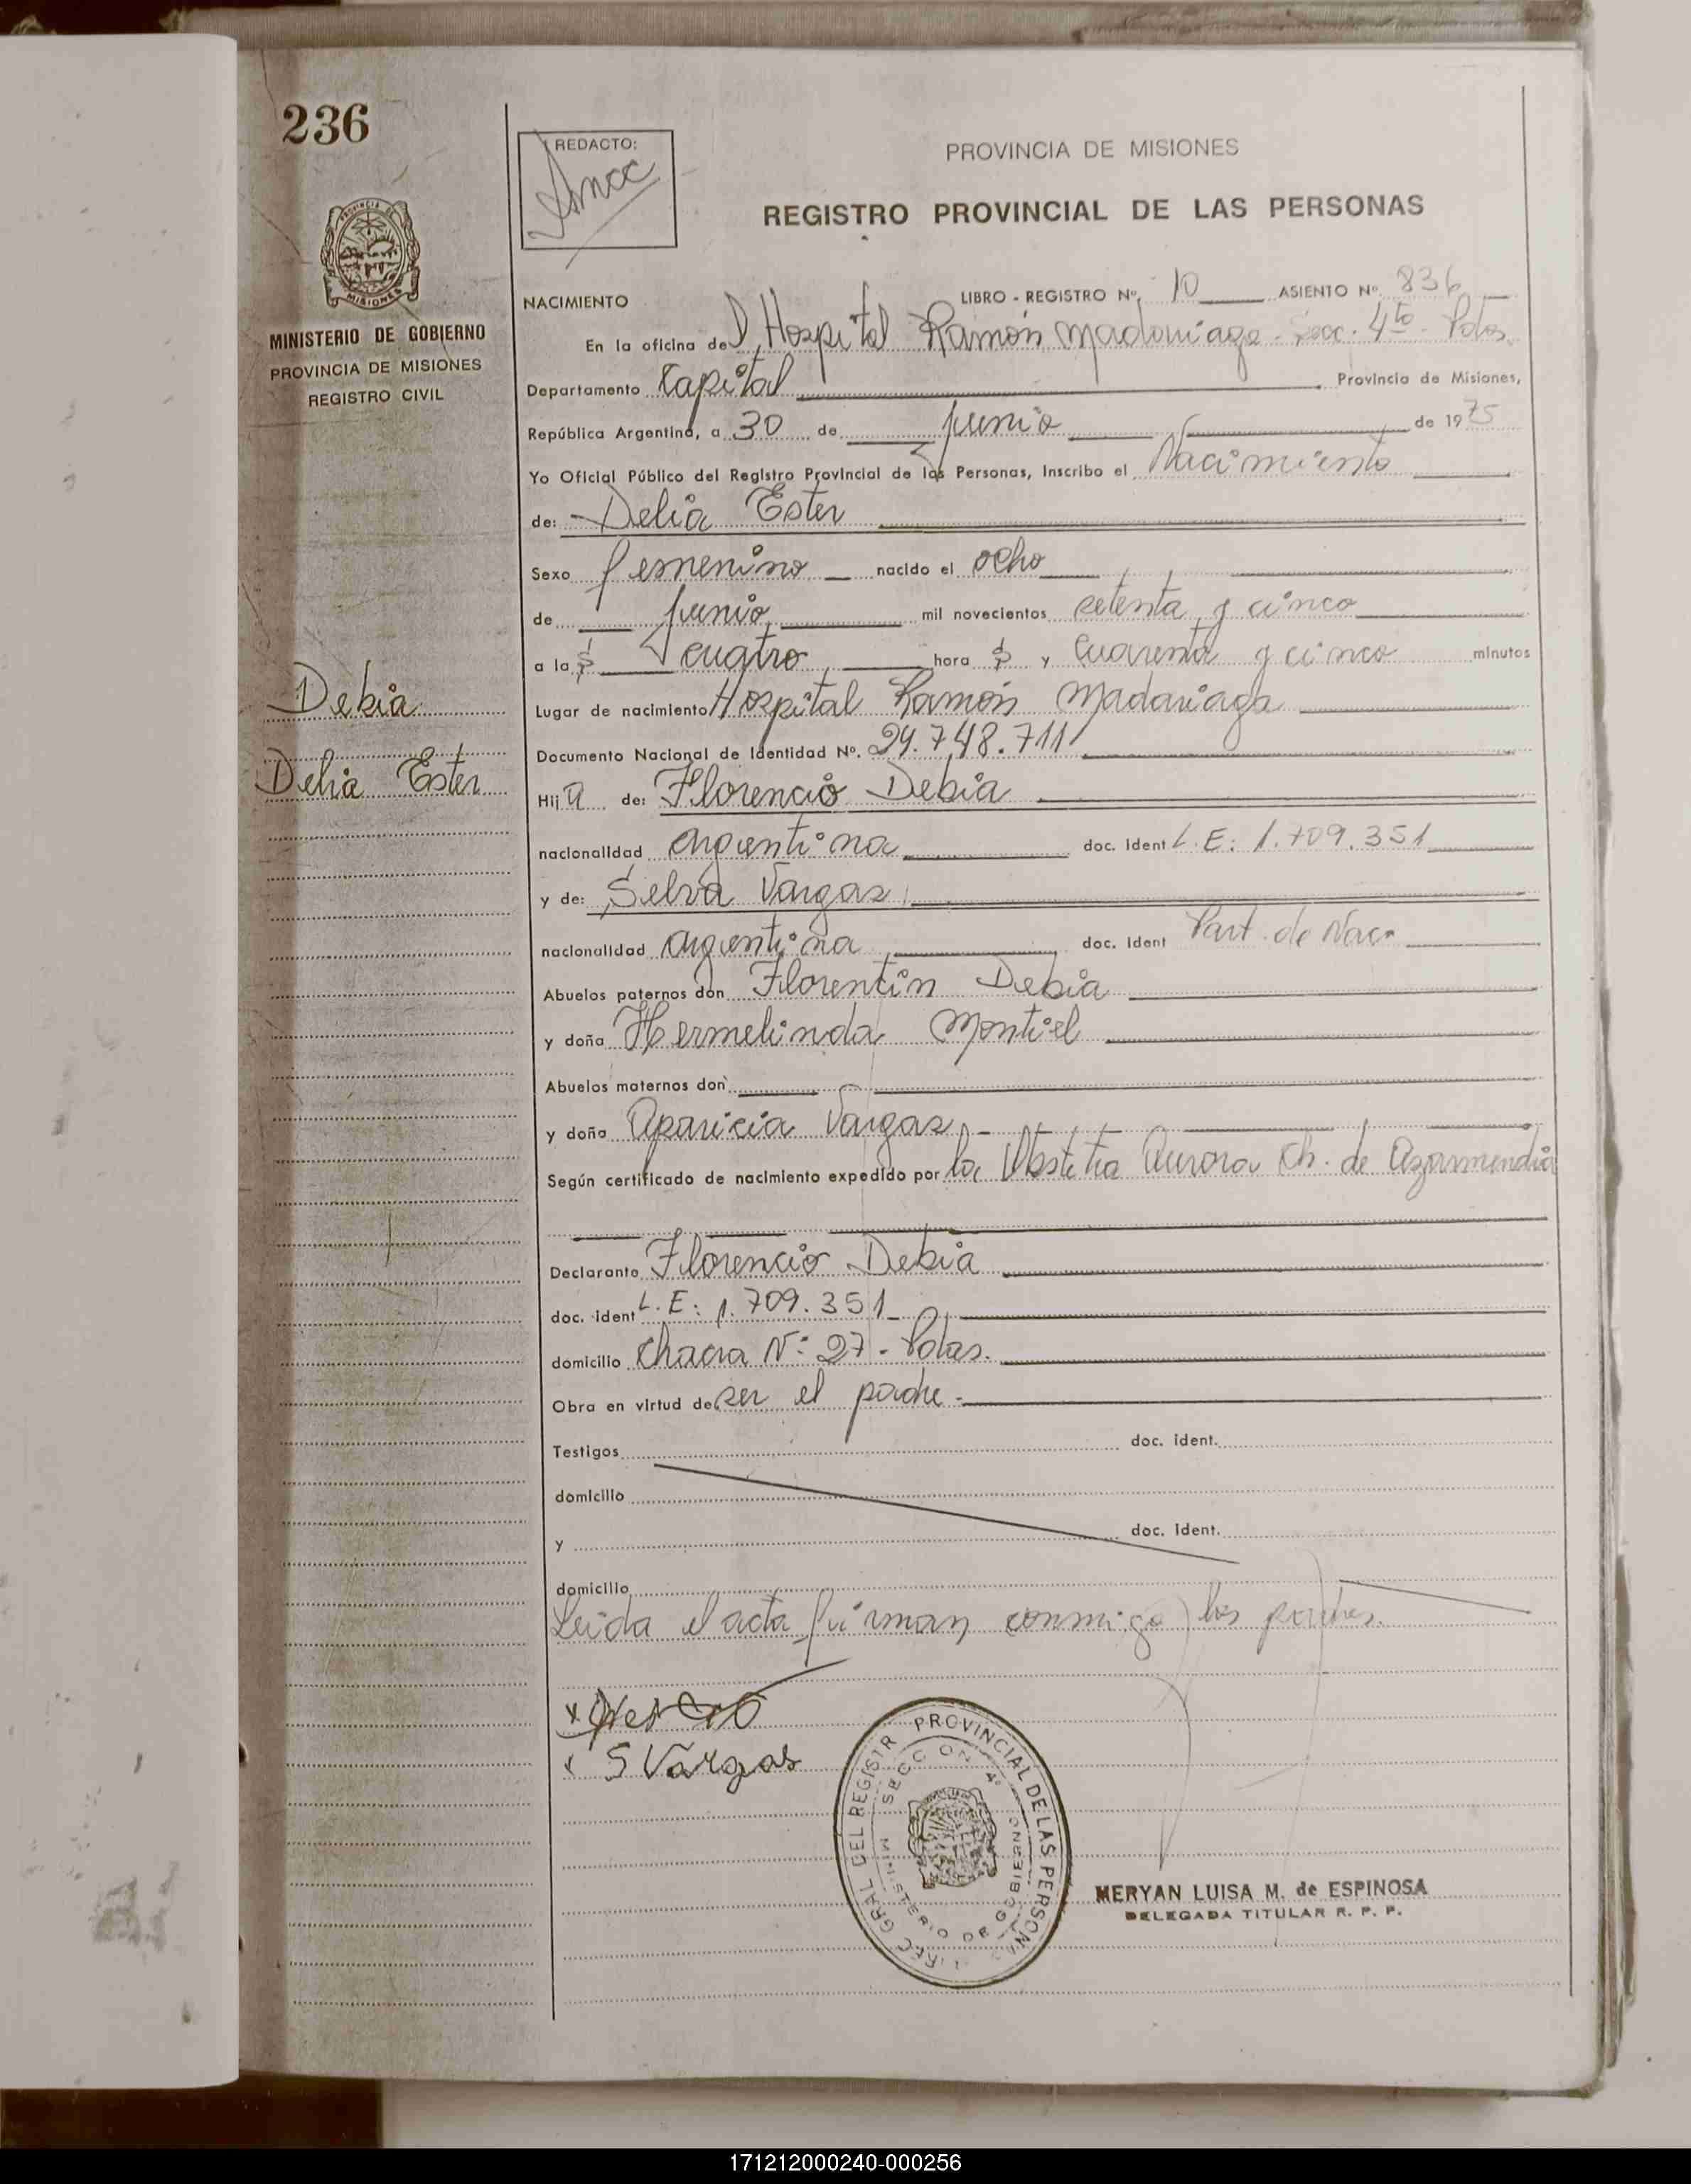 236
REDACTO:
PROVINCIA DE MISIONES
REGISTRO PROVINCIAL DE LAS PERSONAS
MISIONES
MINISTERIO DE GOBIERNO
PROVINCIA DE MISIONES
REGISTRO CIVIL
NACIMIENTO LIBRO - REGISTRO Nº 10 ASIENTO Nº 836
En la oficina del Hospital Ramón Madariaga - Secc. 4ta - Pdas.
Departamento Capital Provincia de Misiones,
República Argentina, a 30 de junio de 1975
Yo Oficial Público del Registro Provincial de las Personas, Inscribo el Nacimiento
de: Delia Ester
Sexo femenino nacido el ocho
de junio mil novecientos setenta y cinco
a las cuatro horas y cuarenta y cinco minutos
Debia
Lugar de nacimiento Hospital Ramón Madariaga
Documento Nacional de Identidad Nº. 24.748.711
Delia Ester
Hija de: Florencio Debia
nacionalidad argentina doc. ident L.E: 1.709.351
y de: Selva Vargas
nacionalidad argentina doc. ident Part. de Nac.
Abuelos paternos don Florentín Debia
y doña Hermelinda Montiel
Abuelos maternos don
y doña Aparicia Vargas
Según certificado de nacimiento expedido por la Obstetra Aurora Ch. de Azarmendia
Declarante Florencio Debia
doc. ident L.E: 1.709.351
domicilio Chacra Nº 27 - Pdas.
Obra en virtud de ser el padre.
Testigos doc. ident.
domicilio
y doc. ident.
domicilio
Leida el acta firman conmigo los padres.
x
x S Vargas
GRAL DEL REGISTR PROVINCIAL DE LAS PERSONA
SECCION 4ª
MINISTERIO DE GOBIERNO
MERYAN LUISA M. de ESPINOSA
DELEGADA TITULAR R. P. P.
171212000240-000256